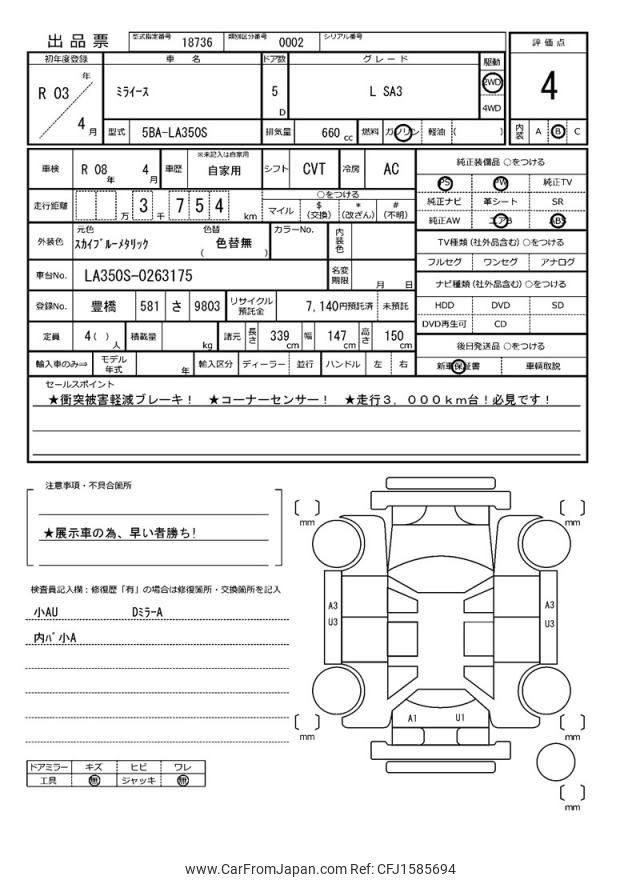 出品票 型式指定番号 18736 類別区分番号 0002 シリアル番号
評価点
4
内装 A B C
初年度登録 車名 ドア数 グレード 駆動
R 03 年 4 月 ミライース 5 D L SA3 2WD 4WD
型式 5BA-LA350S 排気量 660 cc 燃料 ガソリン 軽油 ( )
車検 R 08 年 4 月 車歴 ※未記入は自家用 自家用 シフト CVT 冷房 AC
走行距離 万 3 千 7 5 4 km
○をつける
マイル $(交換) *(改ざん) #(不明)
外装色 元色 スカイブルーメタリック 色替 ( 色替無 ) カラーNo. 内装色
車台No. LA350S-0263175 名変期限 月 日
登録No. 豊橋 581 さ 9803 リサイクル預託金 7,140円預託済 未預託
定員 4( ) 人 積載量 kg 諸元 長さ 339 cm 幅 147 cm 高さ 150 cm
輸入車のみ⇒ モデル年式 年 輸入区分 ディーラー 並行 ハンドル 左 右
純正装備品 ○をつける
PS PW 純正TV
純正ナビ 革シート SR
純正AW エアB ABS
TV種類(社外品含む) ○をつける
フルセグ ワンセグ アナログ
ナビ種類(社外品含む) ○をつける
HDD DVD SD
DVD再生可 CD
後日発送品 ○をつける
新車保証書 車輌取説
セールスポイント
★衝突被害軽減ブレーキ! ★コーナーセンサー! ★走行3,000km台!必見です!
注意事項・不具合箇所
★展示車の為、早い者勝ち!
検査員記入欄:修復歴「有」の場合は修復箇所・交換箇所を記入
小AU Dミラ-A
内バ小A
ドアミラー キズ ヒビ ワレ
工具 無 ジャッキ 無
mm mm
A3 A3
U3 U3
A1 U1
mm mm
mm
www.CarFromJapan.com Ref: CFJ1585694